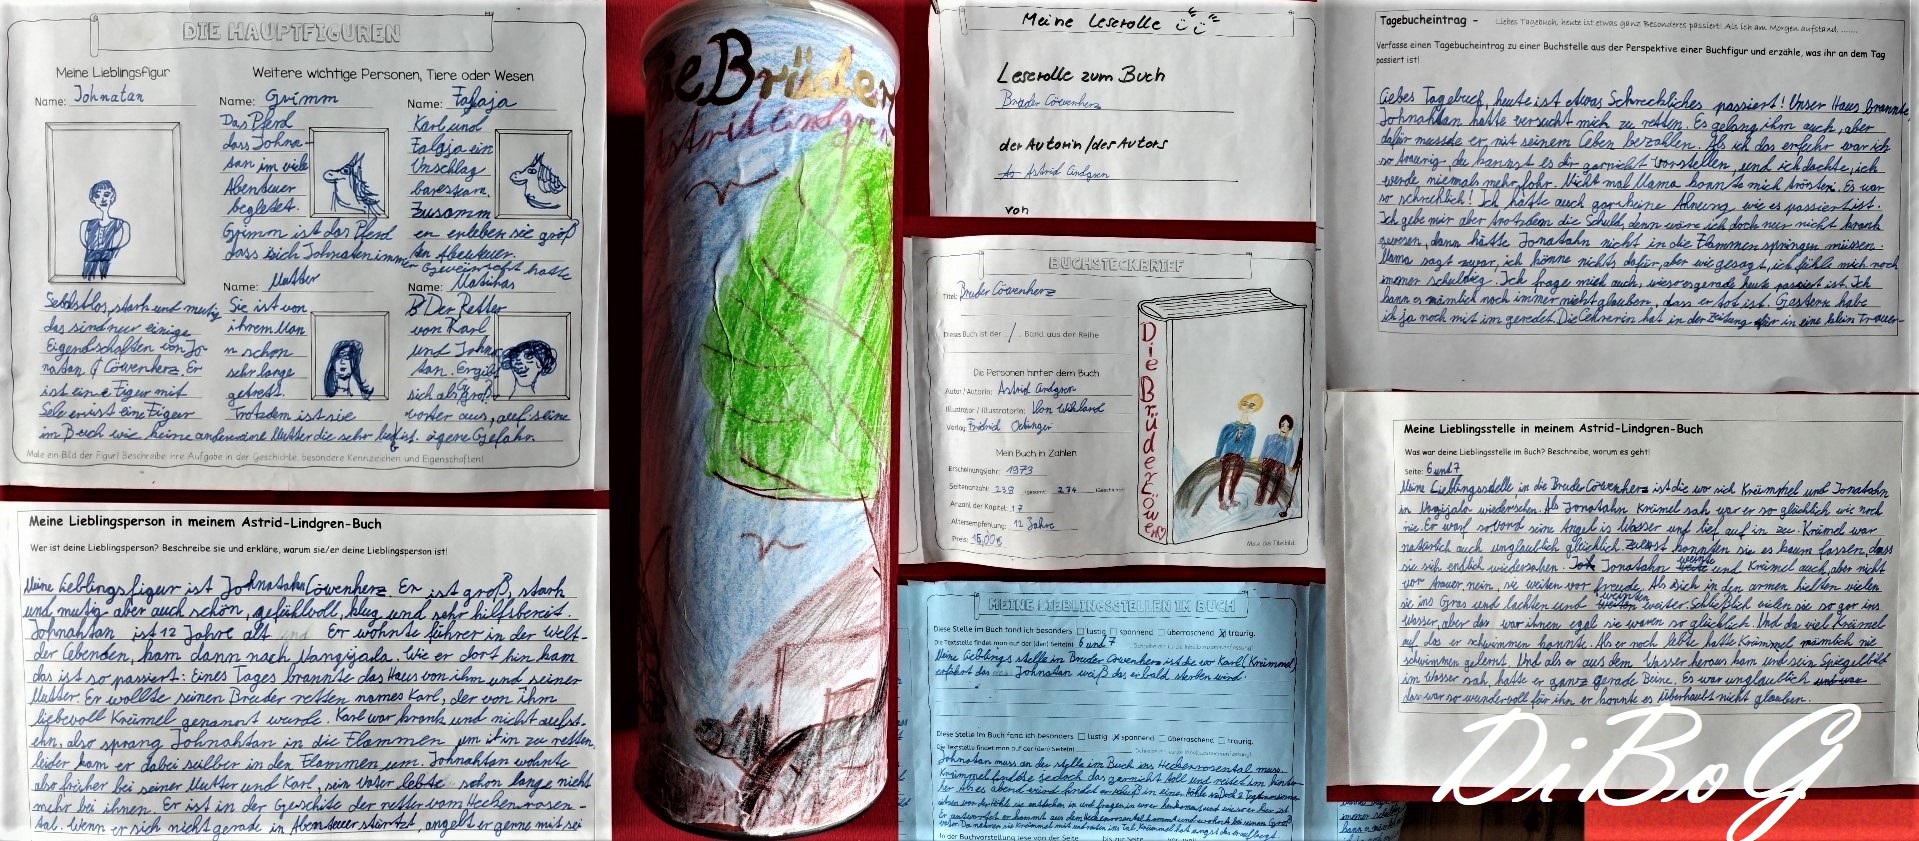 DIE HAUPTFIGUREN
Meine Lieblingsfigur
Name: Johnatan
Weitere wichtige Personen, Tiere oder Wesen
Name: Grimm
Das Pferd
dass Johna-
tan im viele
Abenteuer
begleitet.
Grimm ist das Pferd
dass sich Johnatan immer
Name: Falaja
Karl und
Falaja ein
Unschlag
bares team.
Zusamm
en erleben sie groß
Selbstlos, stark und mutig
das sind nur einige
Eigenschaften von Jo-
natan Löwenherz. Er
ist eine Figur mit
Sele er ist eine Figur
im Buch wie keine andere
Name: Mutter
Sie ist von
ihrem Man
n schon
sehr lange
getrent.
Trotzdem ist sie
eine Mutter die sehr lieb ist.
Name: Matthias
Der Retter
von Karl
und Johna
tan. Ergibt
sich als Groß
vater aus, auf seine
eigene Gefahr.
Male ein Bild der Figur! Beschreibe ihre Aufgabe in der Geschichte, besondere Kennzeichen und Eigenschaften!
Meine Lieblingsperson in meinem Astrid-Lindgren-Buch
Wer ist deine Lieblingsperson? Beschreibe sie und erkläre, warum sie/er deine Lieblingsperson ist!
Meine Lieblingsfigur ist Johnatahn Löwenherz. Er ist groß, stark
und mutig aber auch schön, gefühlvoll, klug und sehr hilfsbereit.
Johnahtan ist 12 Jahre alt Er wohnte führer in der Welt-
der Lebenden, kam dann nach Nangijala. Wie er dort hin kam
das ist so passiert: Eines Tages brannte das Haus von ihm und seiner
Mutter. Er wollte seinen Bruder retten names Karl, der von ihm
liebevoll Krümel genannt wurde. Karl war krank und nicht aufst-
ehn, also sprang Johnahtan in die Flammen um ihn zu retten,
leider kam er dabei selber in den Flammen um. Johnahtan wohnte
also früher bei seiner Mutter und Karl, sein Vater lebte schon lange nicht
mehr bei ihnen. Er ist in der Geschite der retter vom Hecken rosen-
tal. Wenn er sich nicht gerade in Abenteuer stürtzt, angelt er gerne mit sei
ieBrüder
Astrid Lindgren
Meine Leserolle
Leserolle zum Buch
Brüder Löwenherz
der Autorin/des Autors
Astrid Lindgren
von
BUCHSTECKBRIEF
Titel: Bruder Löwenherz
Dieses Buch ist der / . Band aus der Reihe
Die Personen hinter dem Buch
Autor/Autorin: Astrid Lindgren
Illustrator/Illustratorin: Ilon Wikland
Verlag: Fridrid Oetinger
Mein Buch in Zahlen
Erscheinungsjahr: 1973
Seitenanzahl: 238 (gesamt) 234
Anzahl der Kapitel: 17
Altersempfehlung: 12 Jahre
Preis: 15,00€
Die Brüder Löwe
Male das Titelbild.
MEINE LIEBLINGSSTELLEN IM BUCH
Diese Stelle im Buch fand ich besonders lustig spannend überraschend traurig.
Die Textstelle findet man auf der (den) Seite(n) 6 und 7
Meine Lieblings stelle in Bruder Löwenherz ist die wo Karl (Krümmel)
erfahrt das Johnatan weiß das er bald sterben wird.
Diese Stelle im Buch fand ich besonders lustig spannend überraschend traurig.
Die Textstelle findet man auf der (den) Seite(n)
Johnatan muss an der stelle im Buch ins Heckenrosental muss.
In der Buchvorstellung lese von der Seite bis zur Seite
Tagebucheintrag - Liebes Tagebuch, heute ist etwas ganz Besonderes passiert! Als ich am Morgen aufstand, .......
Verfasse einen Tagebucheintrag zu einer Buchstelle aus der Perspektive einer Buchfigur und erzähle, was ihr an dem Tag
passiert ist!
Liebes Tagebuch, heute ist etwas Schreckliches passiert! Unser Haus brannte,
Johnahtan hatte versucht mich zu retten. Es gelang ihm auch, aber
dafür musste er mit seinem Leben bezahlen. Als ich das erfuhr war ich
so traurig, du kannst es dir garnicht vorstellen, und ich dachte, ich
werde niemals mehr froh. Nicht mal Mama konnte mich trösten. Es war
so schrecklich! Ich hatte auch gar keine Ahnung wie es passiert ist.
Ich gebe mir aber trotzdem die Schuld, denn wäre ich doch nur nicht krank
gewesen, dann hätte Jonatahn nicht in die Flammen springen müssen.
Mama sagt zwar, ich könne nichts dafür, aber wie gesagt, ich fühle mich noch
immer schuldig. Ich frage mich auch, wieso es gerade heute passiert ist. Ich
kann es nämlich noch immer nicht glauben, dass er tot ist. Gestern habe
ich ja noch mit im geredet. Die Lehrerin hat in der Zeitung für in eine klein Trauer-
Meine Lieblingsstelle in meinem Astrid-Lindgren-Buch
Was war deine Lieblingsstelle im Buch? Beschreibe, worum es geht!
Seite: 6 und 7
Meine Lieblingsstelle in die Bruder Löwenherz ist die wo sich Krümmel und Jonatahn
in Nagijala wiedersehen. Als Jonatahn Krümel sah war er so glücklich wie noch
nie. Er warf soford seine Angel is Wasser und lief auf in zu. Krümel war
natürlich auch unglaublich glücklich. Zuerst konnten sie es kaum fassen, dass
sie sich endlich wiedersahen. Jonatahn weinte und Krümel auch, aber nicht
vor trauer, nein, sie weiten vor freude. Als sich in den armen hielten vielen
sie ins Gras und lachten und weinten weiter. Schließlich vielen sie so gar ins
wasser, aber das war ihnen egal sie waren so glücklich. Und da viel Krümel
auf das er schwimmen konnte. Als er noch lebte hatte Krümmel nämlich nie
schwimmen gelernt. Und als er aus dem Wasser heraus kam und sein Spiegelbild
im Wasser sah, hatte er ganz gerade Beine. Es war unglaublich und war
das war so wundervoll für ihn er konnte es überhaubt nicht glauben.
DiBoG